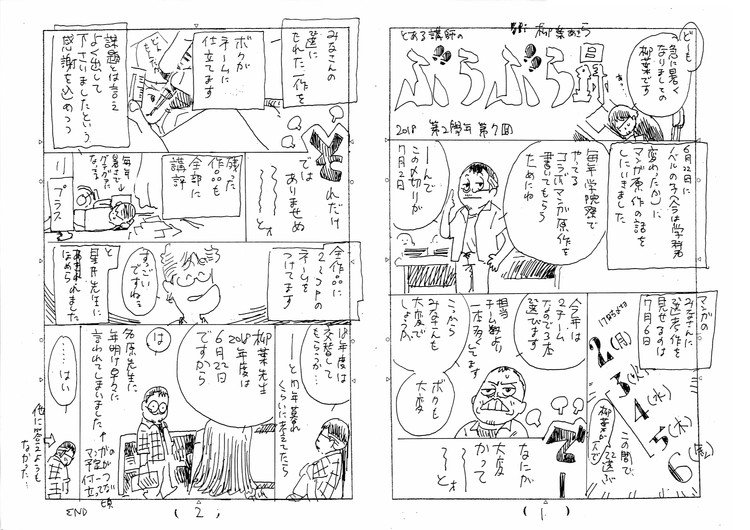 とある講師の
柳葉あきら
ぶらぶら日
2018 第2學年 第7回
どーも
急に暑く
なりましたの
柳葉です
6月22日に
ノベルの
マンガ原作の話を
しにいきました
毎年学院祭で
やってる
コラボマンガ原作を
書いてもらう
ためにね
ーんで
この〆切りが
7月2日
マンガの
みなさんに
選考作を
見せるのは
7月6日
2(月)
3(火)
4(水)
5(木)
6(金)
この間で
柳葉が
選ぶ
今年は
2チーム
なので2本
選びます
担当
チーム数より
本多く
してます
こっから
みなさんも
大変で
しょうが
ボクも
大変
なにが
大変
かって
ーとォ
(1)
みなさんの
選に
もれた一作を
ボクが
ネームに
仕立てます
課題とは言え
よく出して
下さいましたという
感謝を込めつつ
それだけ
では
ありませぬ
ーとォ
残った
作品も
全部に
講評
毎年
暑さで
グチャグチャに
なってる
プラス
全作品に
2〜3Pの
ネームを
つけてます
すっごい
ですねぇ
と
星井先生に
あきれられました
なめられ
18年度は
交替して
もらうか…
ーと同年暮れ
くらいに考えてたら
柳葉先生
2018年度は
6月22日
ですから
は
名原先生に
年明け早々に
言われてしまいました
……はい
マンガの
予告がつって
手付かない
仕立て頃
他に答えようも
なかった…
END
(2)